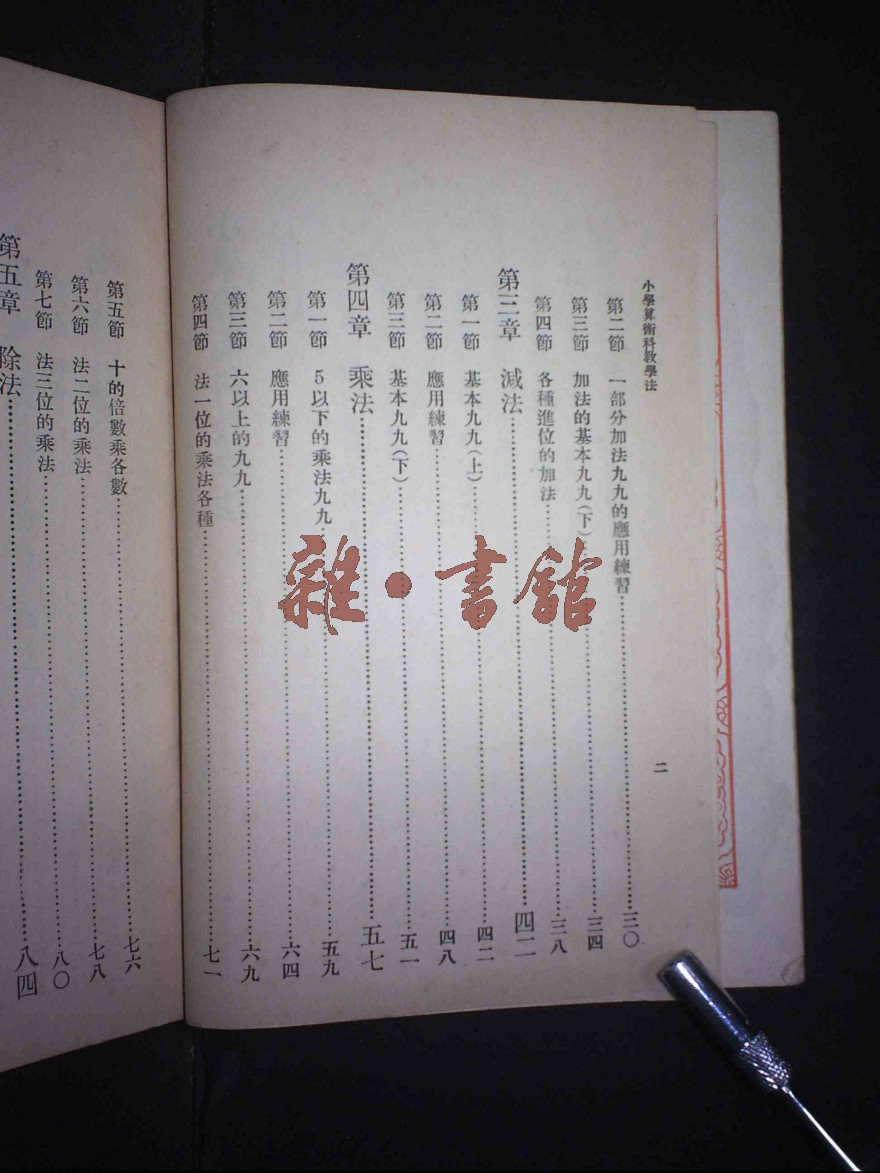 小學算術科敎學法
二
第二節　一部分加法九九的應用練習……三〇
第三節　加法的基本九九(下)……三四
第四節　各種進位的加法……三八
第三章　減法……四二
第一節　基本九九(上)……四二
第二節　應用練習……四八
第三節　基本九九(下)……五一
第四章　乘法……五七
第一節　5以下的乘法九九……五九
第二節　應用練習……六四
第三節　六以上的九九……六九
第四節　法一位的乘法各種……七一
第五節　十的倍數乘各數……七六
第六節　法二位的乘法……七八
第七節　法三位的乘法……八〇
第五章　除法……八四
雜·書館